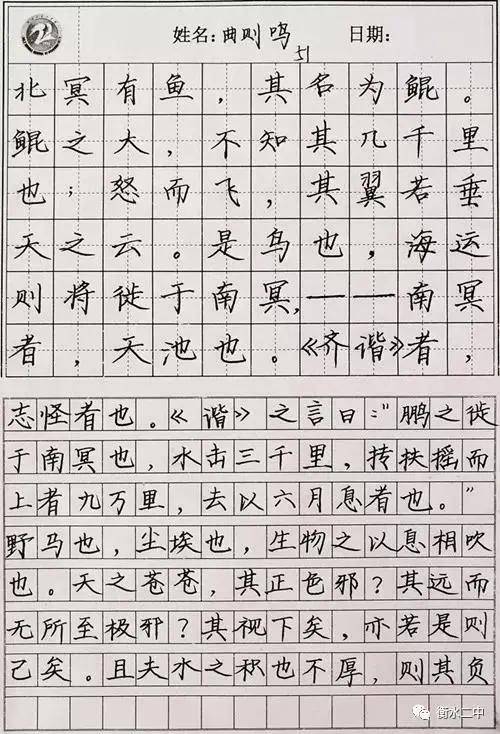 姓名：曲则鸣 日期：
51
北冥有鱼，其名为鲲。
鲲之大，不知其几千里
也；怒而飞，其翼若垂
天之云。是鸟也，海运
则将徙于南冥，——南冥
者，天池也。《齐谐》者，
志怪者也。《谐》之言曰：“鹏之徙
于南冥也，水击三千里，抟扶摇而
上者九万里，去以六月息者也。”
野马也，尘埃也，生物之以息相吹
也。天之苍苍，其正色邪？其远而
无所至极邪？其视下矣，亦若是则
已矣。且夫水之积也不厚，则其负
衡水二中